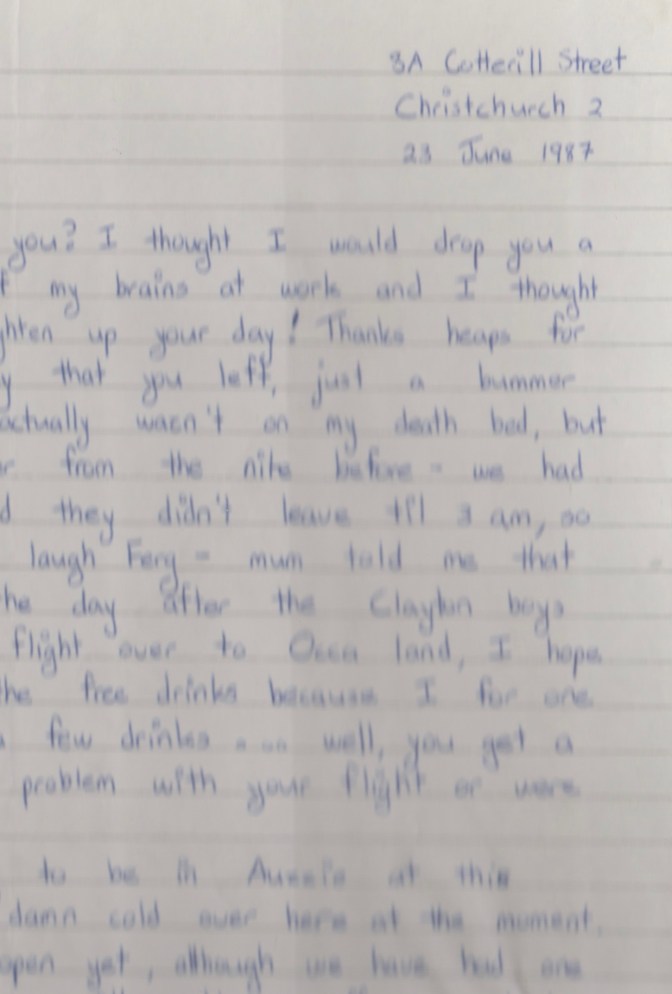 3A Cotterill Street
Christchurch 2
23 June 1987
you? I thought I would drop you a
my brains at work and I thought
ghten up your day! Thanks heaps for
y that you left, just a bummer
actually wasn't on my death bed, but
r from the nite before - we had
d they didn't leave til 3 am, so
laugh Ferg - mum told me that
he day after the Clayton boys
flight over to Occa land, I hope
he free drinks because I for one
few drinks .... well, you get a
problem with your flight or were
to be in Aussie at this
damn cold over here at the moment.
open yet, although we have had one